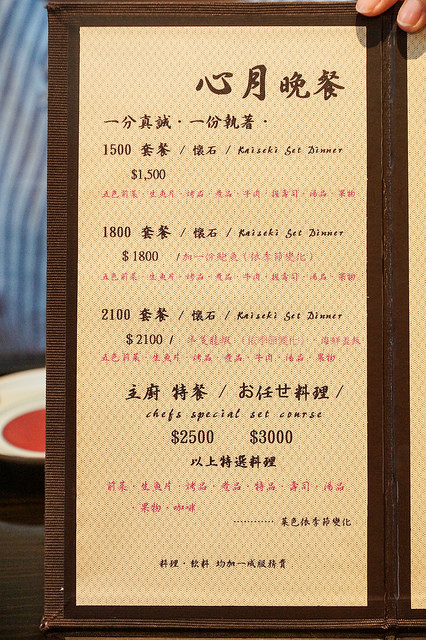 心月晚餐
一分真誠．一份執著．
1500 套餐 / 懷石 / Kaiseki Set Dinner
$1,500
五色前菜．生魚片．烤品．煮品．牛肉．握壽司．湯品．果物
1800 套餐 / 懷石 / Kaiseki Set Dinner
$1800 /加一份鮑魚（依季節變化）
五色前菜．生魚片．烤品．煮品．牛肉．握壽司．湯品．果物
2100 套餐 / 懷石 / Kaiseki Set Dinner
$2100 / 半隻龍蝦（依季節變化）．海鮮蓋飯
五色前菜．生魚片．烤品．煮品．牛肉．湯品．果物
主廚 特餐 / お任せ料理 /
chefs special set course
$2500 $3000
以上特選料理
前菜．生魚片．烤品．煮品．特品．壽司．湯品
．果物．咖啡
············ 菜色依季節變化
料理．飲料 均加一成服務費